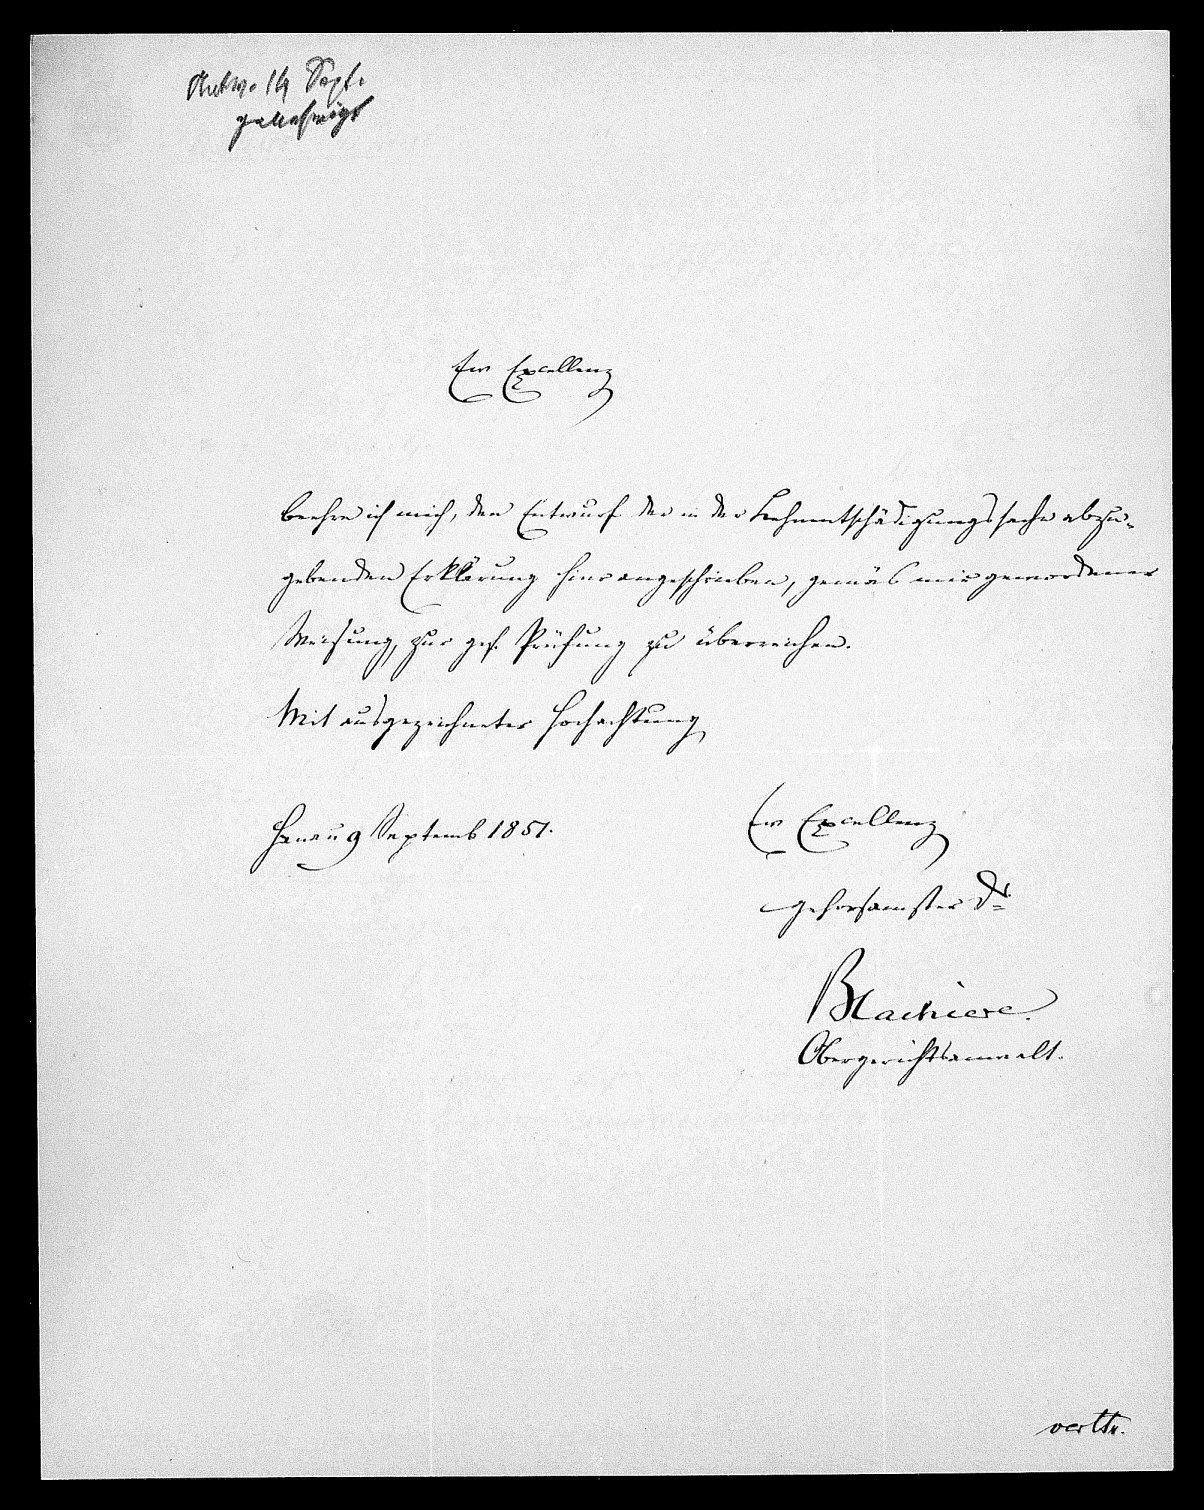 Antw. 14 Sept.
genehmigt
Ew Excellenz
beehre ich mich, den Entwurf der in der Lehnentschädigungssache abzu-
gebenden Erklärung hier angeschrieben, gemäs mir gewordener
Weisung, zur gef. Prüfung zu überreichen.
Mit ausgezeichneter Hochachtung
Hanau 9 Septemb 1851.
Ew Excellenz
gehorsamster Dr
Blachiere.
Obergerichtsanwalt.